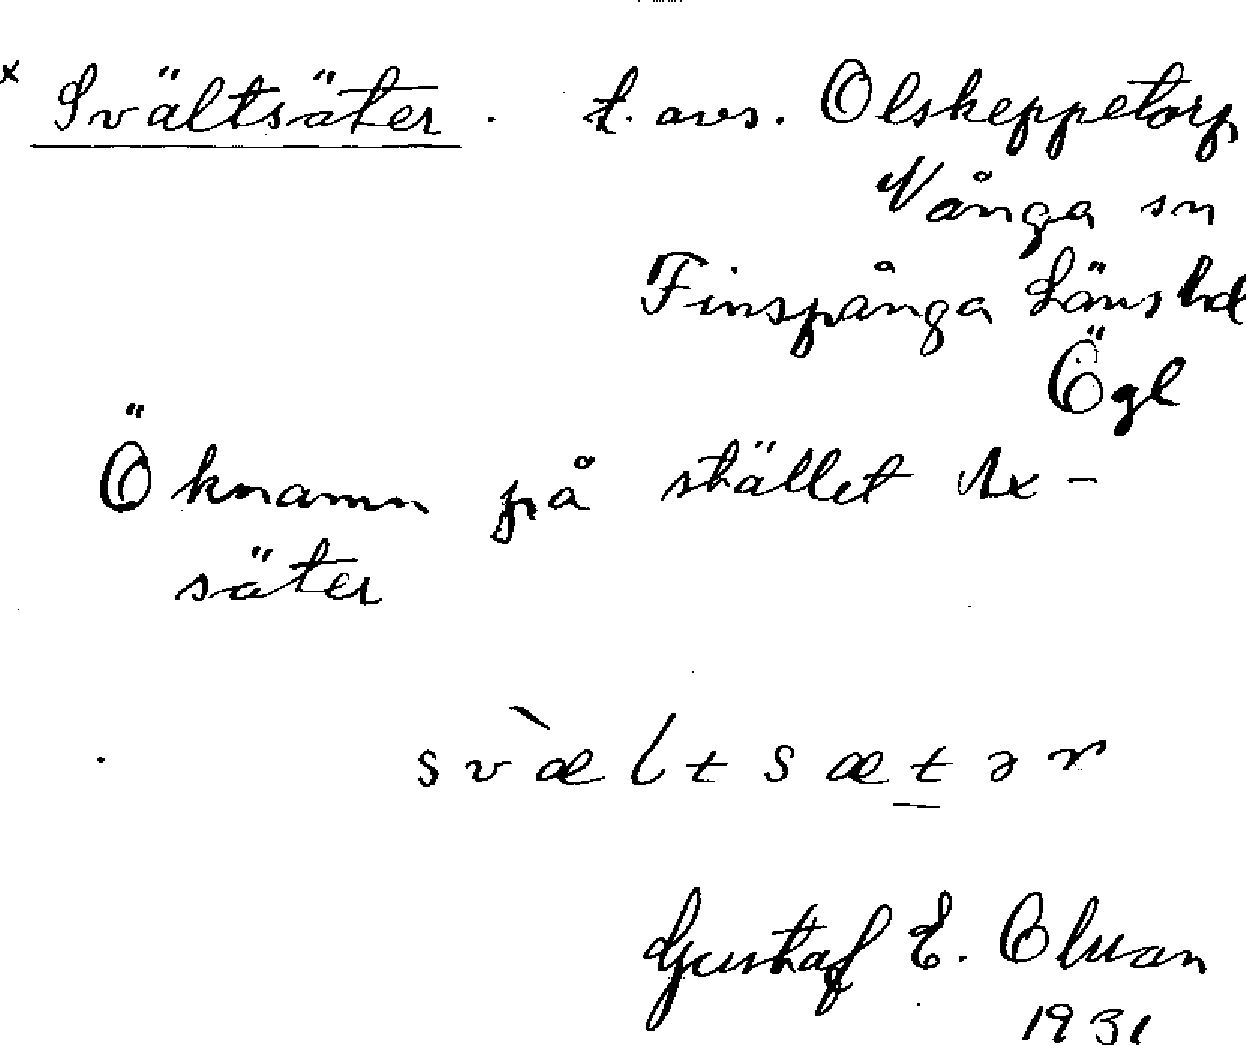 x Svältsäter. t. avs. Olskeppetorp
Vånga sn
Finspånga Länshd
Ögl
Öknamn på stället Ax-
säter
svæ̀ltsætər
Gustaf E. Cluan
1931